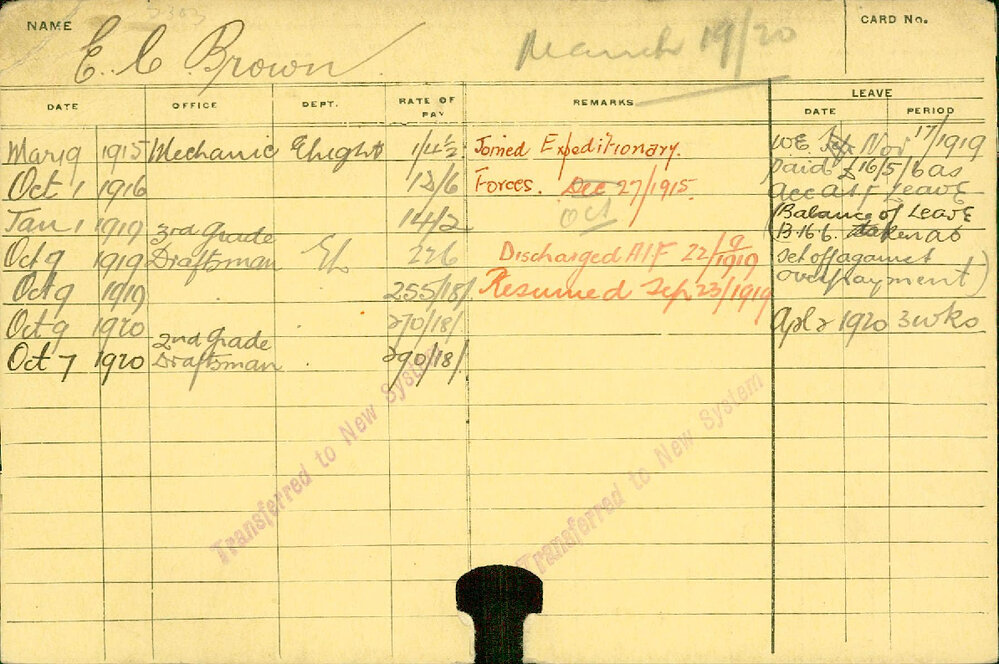 NAME
E. C. Brown
March 19/20
CARD No.
DATE OFFICE DEPT. RATE OF PAY REMARKS LEAVE
DATE PERIOD
Mar 19 1915 Mechanic Elight 1/4½ Joined Expeditionary. W.E. Nov 17/1919
Oct 1 1916 12/6 Forces. Dec 27/1915. paid £16/5/6 as
Oct
acc A.I.F Leave
Jan 1 1919 14/2 (Balance of Leave
3rd Grade B.166. taken as
Oct 9 1919 Draftsman EL 226 Discharged AIF 22/9/1919 set off against
overpayment)
Oct 9 1919 255/18/ Resumed Sep 23/1919
Oct 9 1920 270/18/ Apl 2 1920 3 wks
2nd Grade
Oct 7 1920 Draftsman 290/18/
Transferred to New System
Transferred to New System